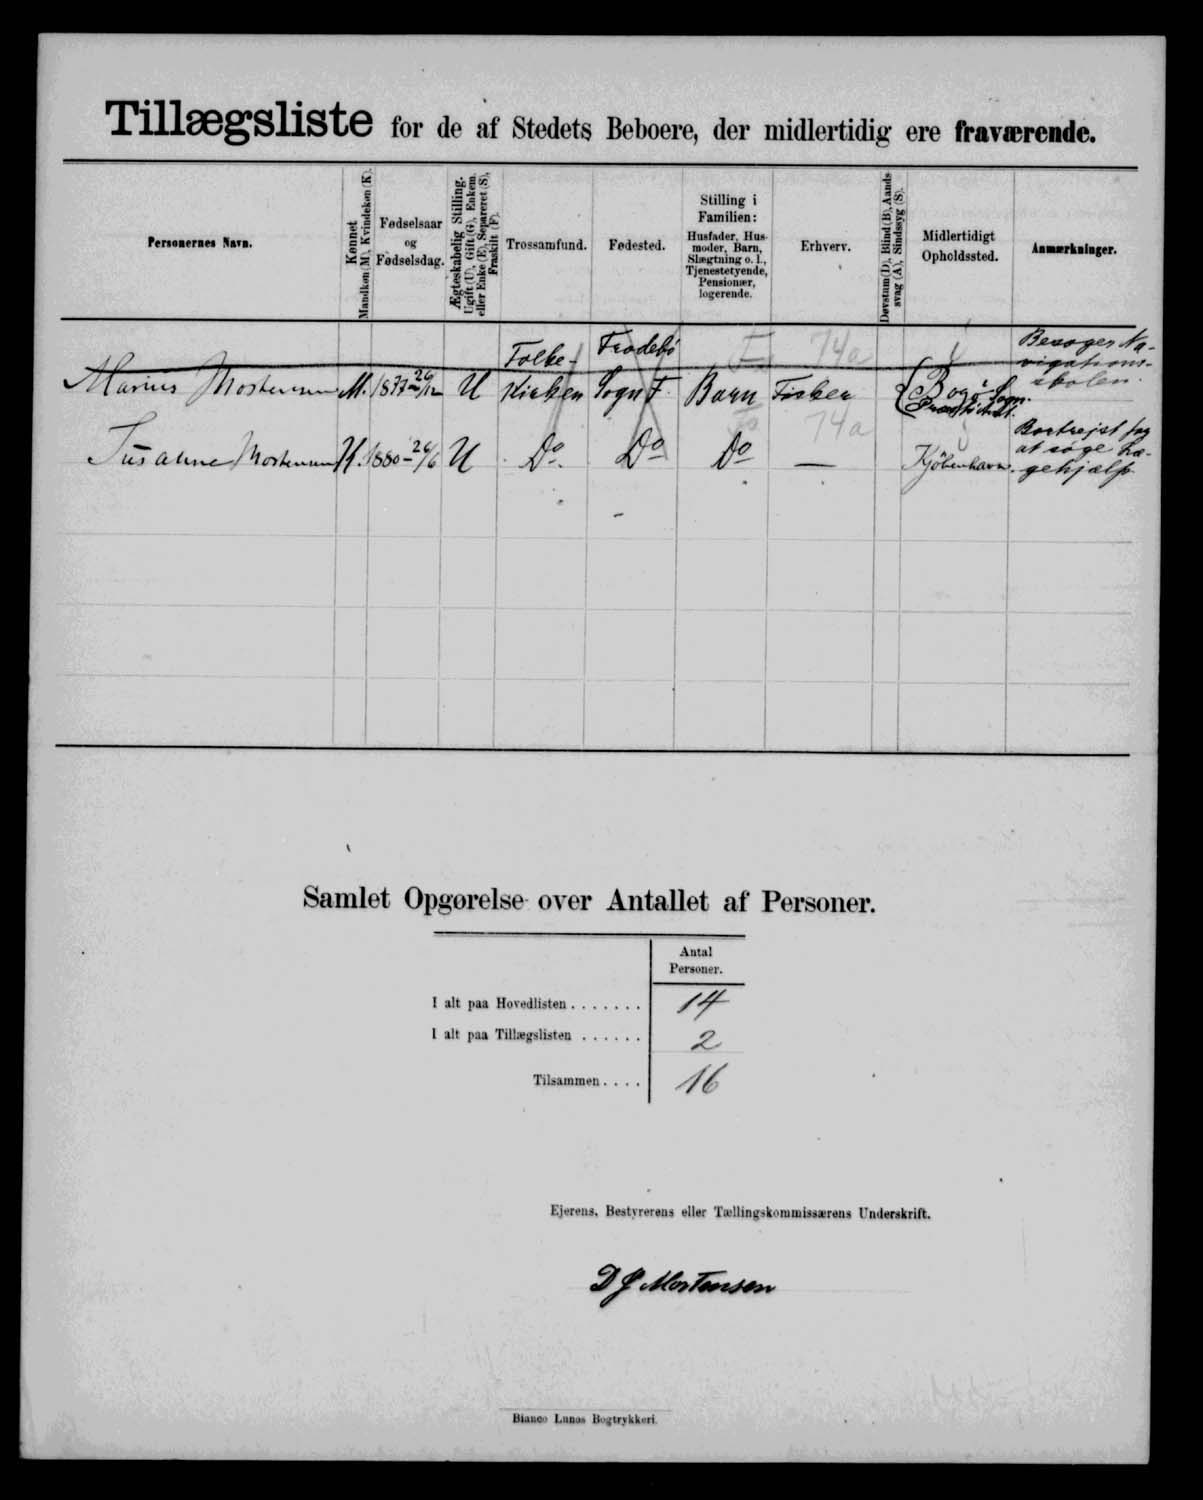 Tillægsliste for de af Stedets Beboere, der midlertidig ere fraværende.
Personernes Navn.
Kønnet
Mandkøn (M), Kvindekøn (K).
Fødselsaar
og
Fødselsdag.
Ægteskabelig Stilling.
Ugift (U), Gift (G), Enkem.
eller Enke (E), Separeret (S),
Fraskilt (F).
Trossamfund.
Fødested.
Stilling i
Familien:
Husfader, Hus-
moder, Barn,
Slægtning o. l.,
Tjenestetyende,
Pensionær,
logerende.
Erhverv.
Døvstum (D), Blind (B), Aands-
svag (A), Sindssyg (S).
Midlertidigt
Opholdssted.
Anmærkninger.
Marius Mortensen M. 1877 26/12 U Folke-
Kirken Frodebö
Sogn F. Barn Fisker 74a Bogö Sogn.
Præstö Amt. Besøger Na-
vigations-
skolen.
Susanne Mortensen K. 1880 - 26/6 U Do. Do Do — 74a Kjøbenhavn. Bortrejst for
at söge Læ-
gehjælp
Samlet Opgørelse over Antallet af Personer.
Antal
Personer.
I alt paa Hovedlisten . . . . . . . 14
I alt paa Tillægslisten . . . . . . 2
Tilsammen . . . . 16
Ejerens, Bestyrerens eller Tællingskommissærens Underskrift.
D J Mortensen
Bianco Lunos Bogtrykkeri.